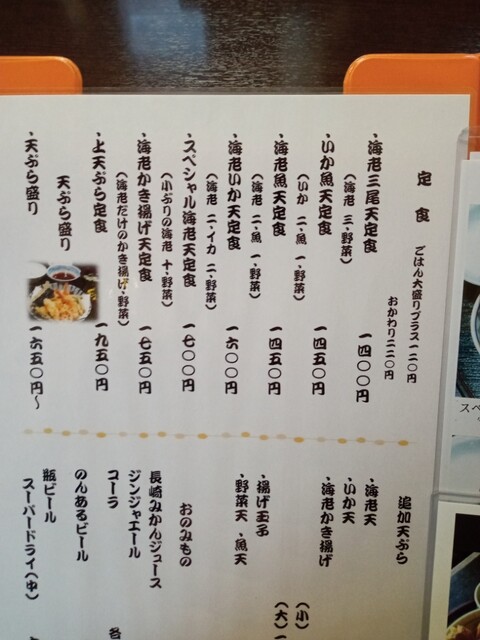 定食
ごはん大盛りプラス一二〇円
おかわり二二〇円
・海老三尾天定食 一四〇〇円
（海老 三・野菜）
・いか魚天定食 一四五〇円
（いか 二・魚 一・野菜）
・海老魚天定食 一四五〇円
（海老 二・魚 一・野菜）
・海老いか天定食 一六〇〇円
（海老 二・イカ 二・野菜）
・スペシャル海老天定食 一七〇〇円
（小ぶりの海老 十・野菜）
・海老かき揚げ天定食 一七五〇円
（海老だけのかき揚げ・野菜）
・上天ぷら定食 一九五〇円
天ぷら盛り
・天ぷら盛り 一六五〇円～
追加天ぷら
・海老天
・いか天
・海老かき揚げ
（小）
（大）
・揚げ玉子
・野菜天 ・魚天
おのみもの
長崎みかんジュース
ジンジャエール
コーラ
各
のんあるビール
瓶ビール
スーパードライ（中）
スペ